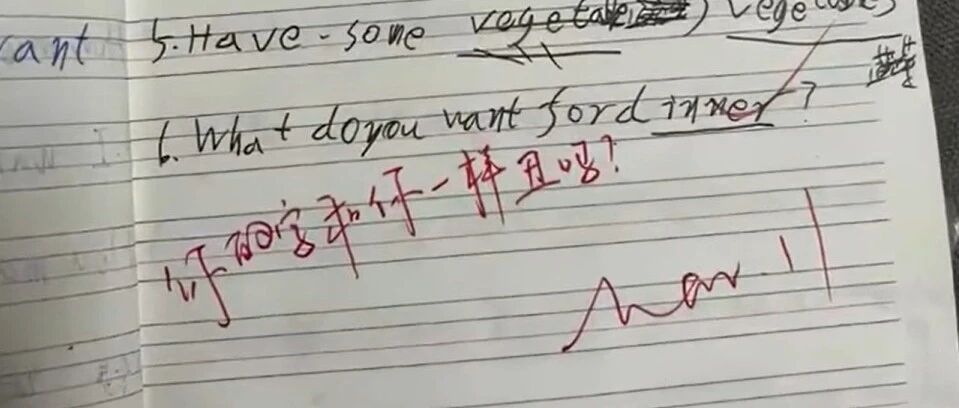 ant 5. Have some vegetable, vegetables
6. What do you want ford inner?
你的字和你一样丑吗?
Nov. 11